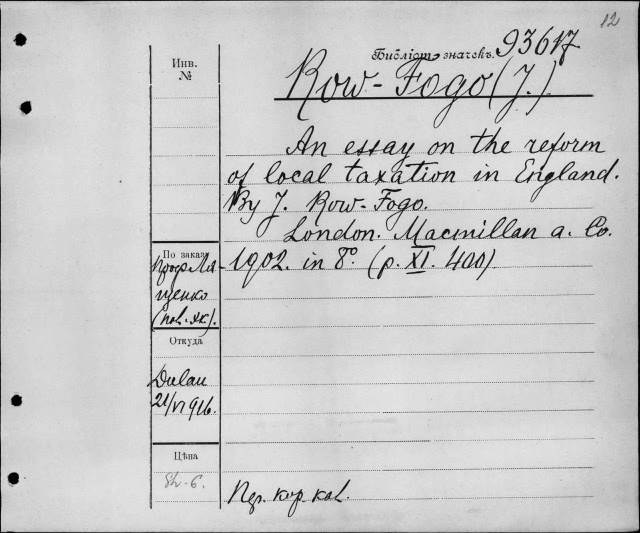 12
Библіот. значекъ. 93617
Инв.
№
Row-Fogo (J.)
An essay on the reform
of local taxation in England.
By J. Row-Fogo.
London. Macmillan a. Co.
1902. in 8º. (p. XI. 400)
По заказу
Проф. Мя-
щенко
Откуда
Dulau
21/VI 916.
Цѣна
Sh. 6.